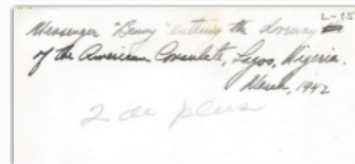 L-95
Messenger "Benny" entering the doorway
of the American Consulate, Lagos, Nigeria.
March, 1942
2 de plus